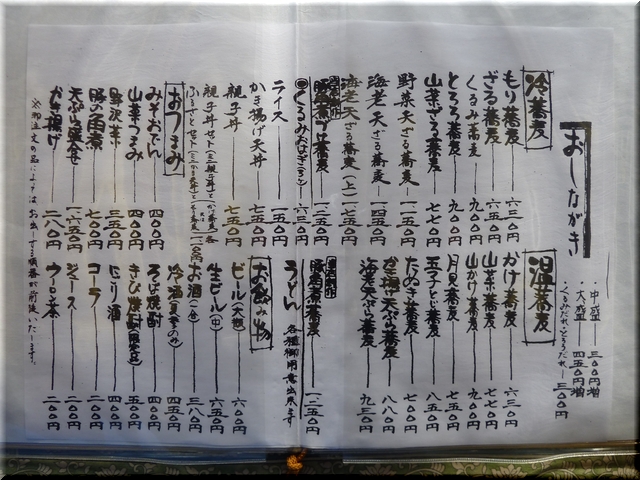 おしながき
・中盛 ― 三〇〇円増
・大盛 ― 四五〇円増
・くるみだれ・とろろだれ ― 三〇〇円
冷蕎麦
もり蕎麦 六三〇円
ざる蕎麦 六五〇円
くるみ蕎麦 九〇〇円
とろろ蕎麦 九〇〇円
山菜ざる蕎麦 七七〇円
野菜天ざる蕎麦 一一五〇円
海老天ざる蕎麦 一四五〇円
海老天ざる蕎麦(上) 一七五〇円
一二五〇円
くるみおはぎ(三ケ) 六三〇円
ライス 一五〇円
かき揚げ天丼 七五〇円
親子丼 七五〇円
おつまみ
みそおでん 四〇〇円
山菜つまみ 四〇〇円
野沢菜 三五〇円
豚の角煮 七〇〇円
天ぷら盛合せ 一六五〇円
かき揚げ 二八〇円
※御注文の品によってはお出しする順番が前後いたします。
温蕎麦
かけ蕎麦 六三〇円
山菜蕎麦 七七〇円
山かけ蕎麦 七七〇円
月見蕎麦 七五〇円
玉子とじ蕎麦 八五〇円
たぬき蕎麦 七〇〇円
かき揚天ぷら蕎麦 八八〇円
海老天ぷら蕎麦 九三〇円
豚角煮蕎麦 一二五〇円
うどん 各種御用意出来ます
お飲み物
ビール(大瓶) 六五〇円
生ビール(中) 六五〇円
お酒(一合) 三八〇円
冷酒(夏季のみ) 四五〇円
そば焼酎 四〇〇円
きび焼酎 五〇〇円
にごり酒 四〇〇円
コーラ 二〇〇円
ジュース 二〇〇円
ウーロン茶 二〇〇円